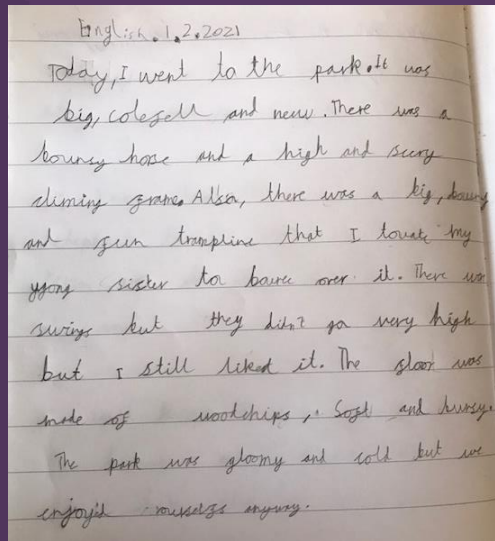 English.1.2.2021
Today, I went to the park. It was
big, colegell and new. There was a
bounsy hose and a high and scery
climing frame. Alsa, there was a big, bouny
and fun trampline that I tovate my
yyong sister to bource over it. There was
swings but they didn't go very high
but I still liked it. The floor was
made of woodchips, . Soft and bunsy.
The park was gloomy and cold but we
enjoy'd ourselfs anyway.